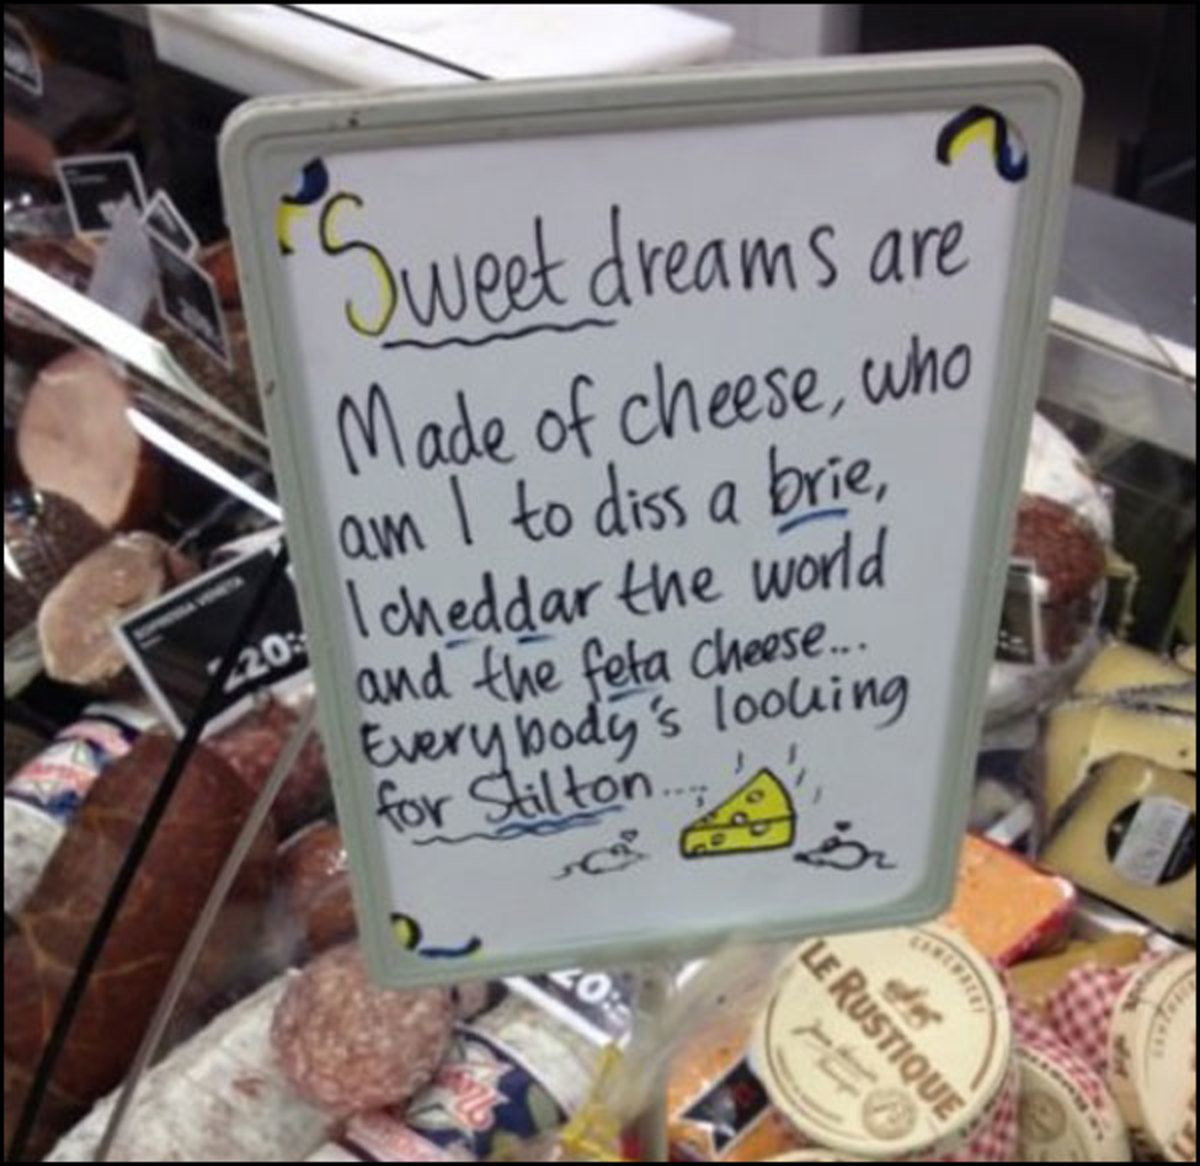 Sweet dreams are
Made of cheese, who
am I to diss a brie,
I cheddar the world
and the feta cheese...
Everybody's looking
for Stilton....
20:
20:
CAMEMBERT
LE RUSTIQUE